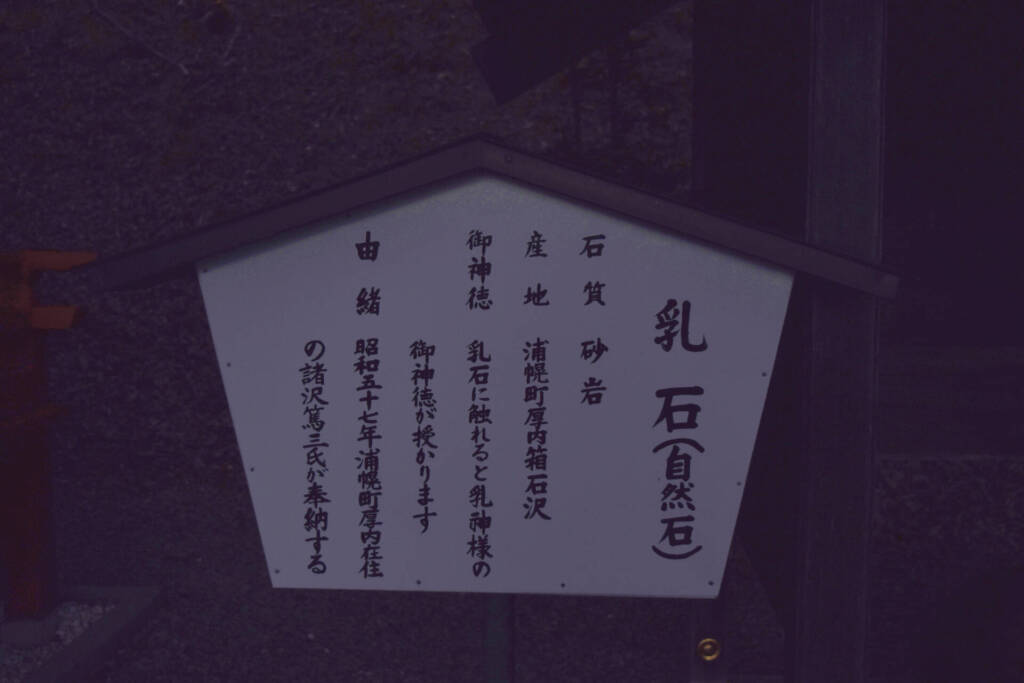 乳石(自然石)
石質 砂岩
産地 浦幌町厚内箱石沢
御神徳 乳石に触れると乳神様の
御神徳が授かります
由緒 昭和五十七年浦幌町厚内在住
の諸沢篤三氏が奉納する